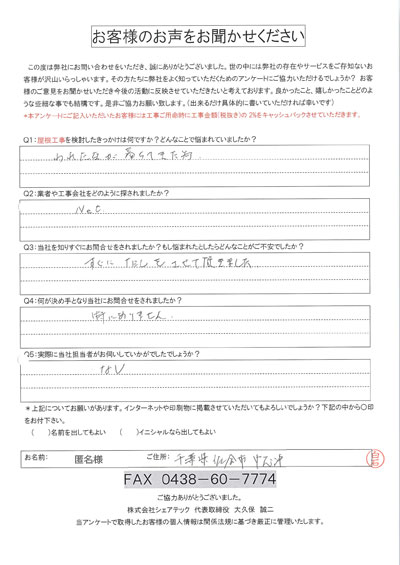 お客様のお声をお聞かせください
この度は弊社にお問い合わせをいただき、誠にありがとうございました。世の中には弊社の存在やサービスをご存知ないお
客様が沢山いらっしゃいます。その方たちに弊社をよく知っていただくためのアンケートにご協力いただけるでしょうか？ お客
様のご意見をお聞かせいただき今後の活動に反映させていただきたいと考えております。良かったこと、嬉しかったことどのよ
うな些細な事でも結構です。是非ご協力お願い致します。（出来るだけ具体的に書いていただければ幸いです）
*本アンケートにご記入いただいたお客様には工事ご用命時に工事金額(税抜き)の 2%をキャッシュバックさせていただきます。
Q1：屋根工事を検討したきっかけは何ですか？どんなことで悩まれていましたか？
われた
Q2：業者や工事会社をどのように探されましたか？
Net
Q3：当社を知りすぐにお問合せをされましたか？もし悩まれたとしたらどんなことがご不安でしたか？
すぐに させて頂きました
Q4：何が決め手となり当社にお問合せをされましたか？
特にありません
Q5：実際に当社担当者がお伺いしていかがでしたでしょうか？
なし
＊上記についてお願いがあります。インターネットや印刷物に掲載させていただいてもよろしいでしょうか？下記の中から〇印
をお付下さい。
（ ）名前を出してもよい （ ）イニシャルなら出してもよい
お名前： 匿名様 ご住所： 千葉県
FAX 0438-60-7774
ご協力ありがとうございました。
株式会社シェアテック 代表取締役 大久保 誠二
当アンケートで取得したお客様の個人情報は関係法規に基づき厳正に管理いたします。